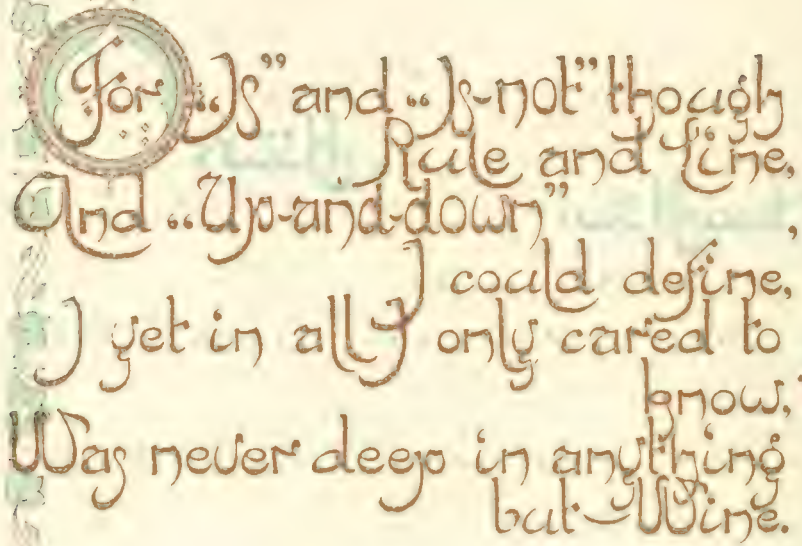 For “Is” and “Is-not” though
Rule and Line,
And “Up-and-down”,
I could define,
I yet in all I only cared to
know,
Was never deep in anything
but—Wine.